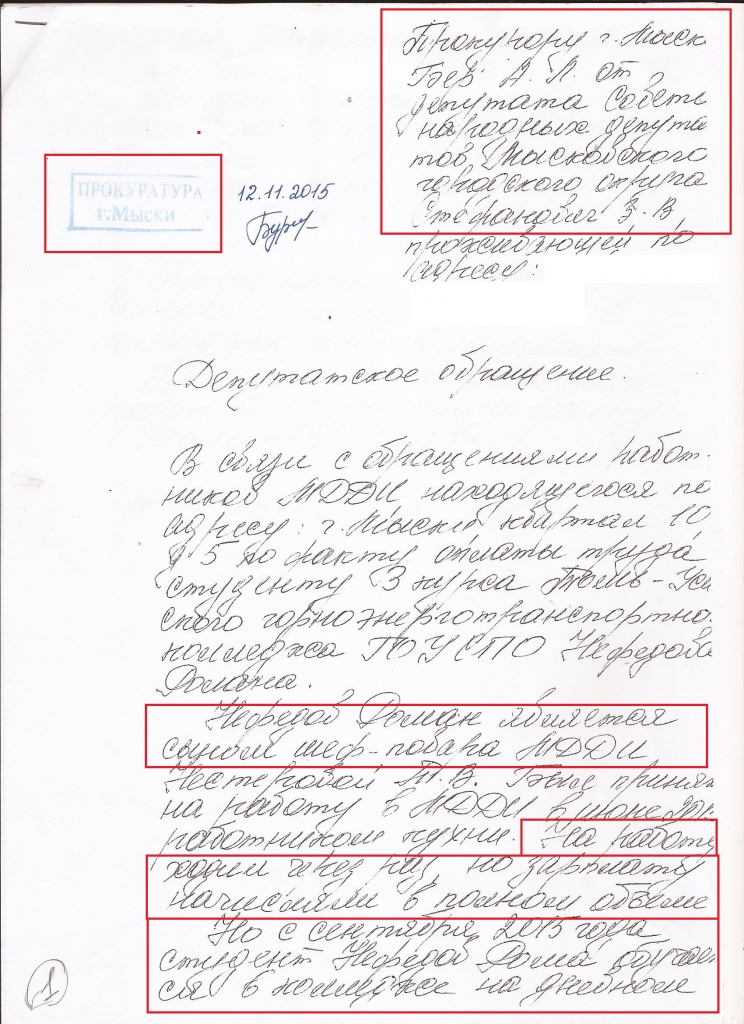 Прокурору г. Мыск
Бер А. Л. от
депутата Совета
народных депута
тов Мысковского
городского округа
Стефанович З. В
проживающей по
адресу:
ПРОКУРАТУРА
г.Мыски
12.11.2015
Депутатское обращение.
В связи с обращениями работ-
ников МДДИ находящегося по
адресу: г. Мыски квартал 10
д 5 по факту оплаты труда
студенту 3 курса Томь-Уси
ского горноэнерготранспортно.
колледжа ГОУСПО Нефедова
Романа.
Нефедов Роман является
сыном шеф-повара МДДИ
Нестеровой Т. В. Был принят
на работу в МДДИ в июне
работником кухни. На работу
ходил через раз, но зарплату
начисляли в полном объеме
Но с сентября 2015 года
студент Нефедов Рома обучает
ся в колледже на дневном
1